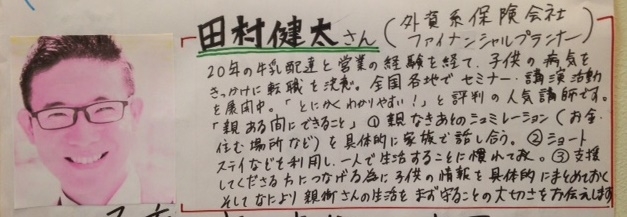 田村健太さん(外資系保険会社
ファイナンシャルプランナー)
20年の牛乳配達と営業の経験を経て、子供の病気を
きっかけに転職を決意。全国各地でセミナー・講演活動
を展開中。「とにかくわかりやすい!」と評判の人気講師です。
「親ある間にできること」①親なきあとのシュミレーション(お金・
住む場所など)を具体的に家族で話し合う。②ショート
ステイなどを利用し、一人で生活することに慣れておく。③支援
してくださる方につなげる為に子供の情報を具体的にまとめておく
そしてなにより親御さんの生活をまず守ることの大切さをお伝えします